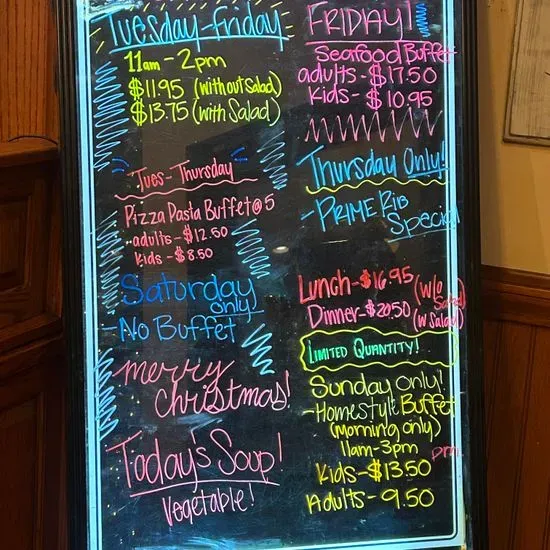 Tuesday-friday
11am - 2pm
$11.95 (without salad)
$13.75 (with Salad)
Tues - Thursday
Pizza Pasta Buffet @ 5
adults - $12.50
Kids - $8.50
Saturday
only!
- No Buffet
merry
christmas!
Today's Soup!
Vegetable!
FRIDAY!
Seafood Buffet
adults - $17.50
Kids - $10.95
Thursday Only!
- PRIME RIB
Special
Lunch - $16.95 (w/o Salad)
Dinner - $20.50 (w Salad)
LIMITED QUANTITY!
Sunday only!
- Homestyle Buffet
(morning only)
11am - 3pm
pm
Kids - $13.50
Adults - 9.50